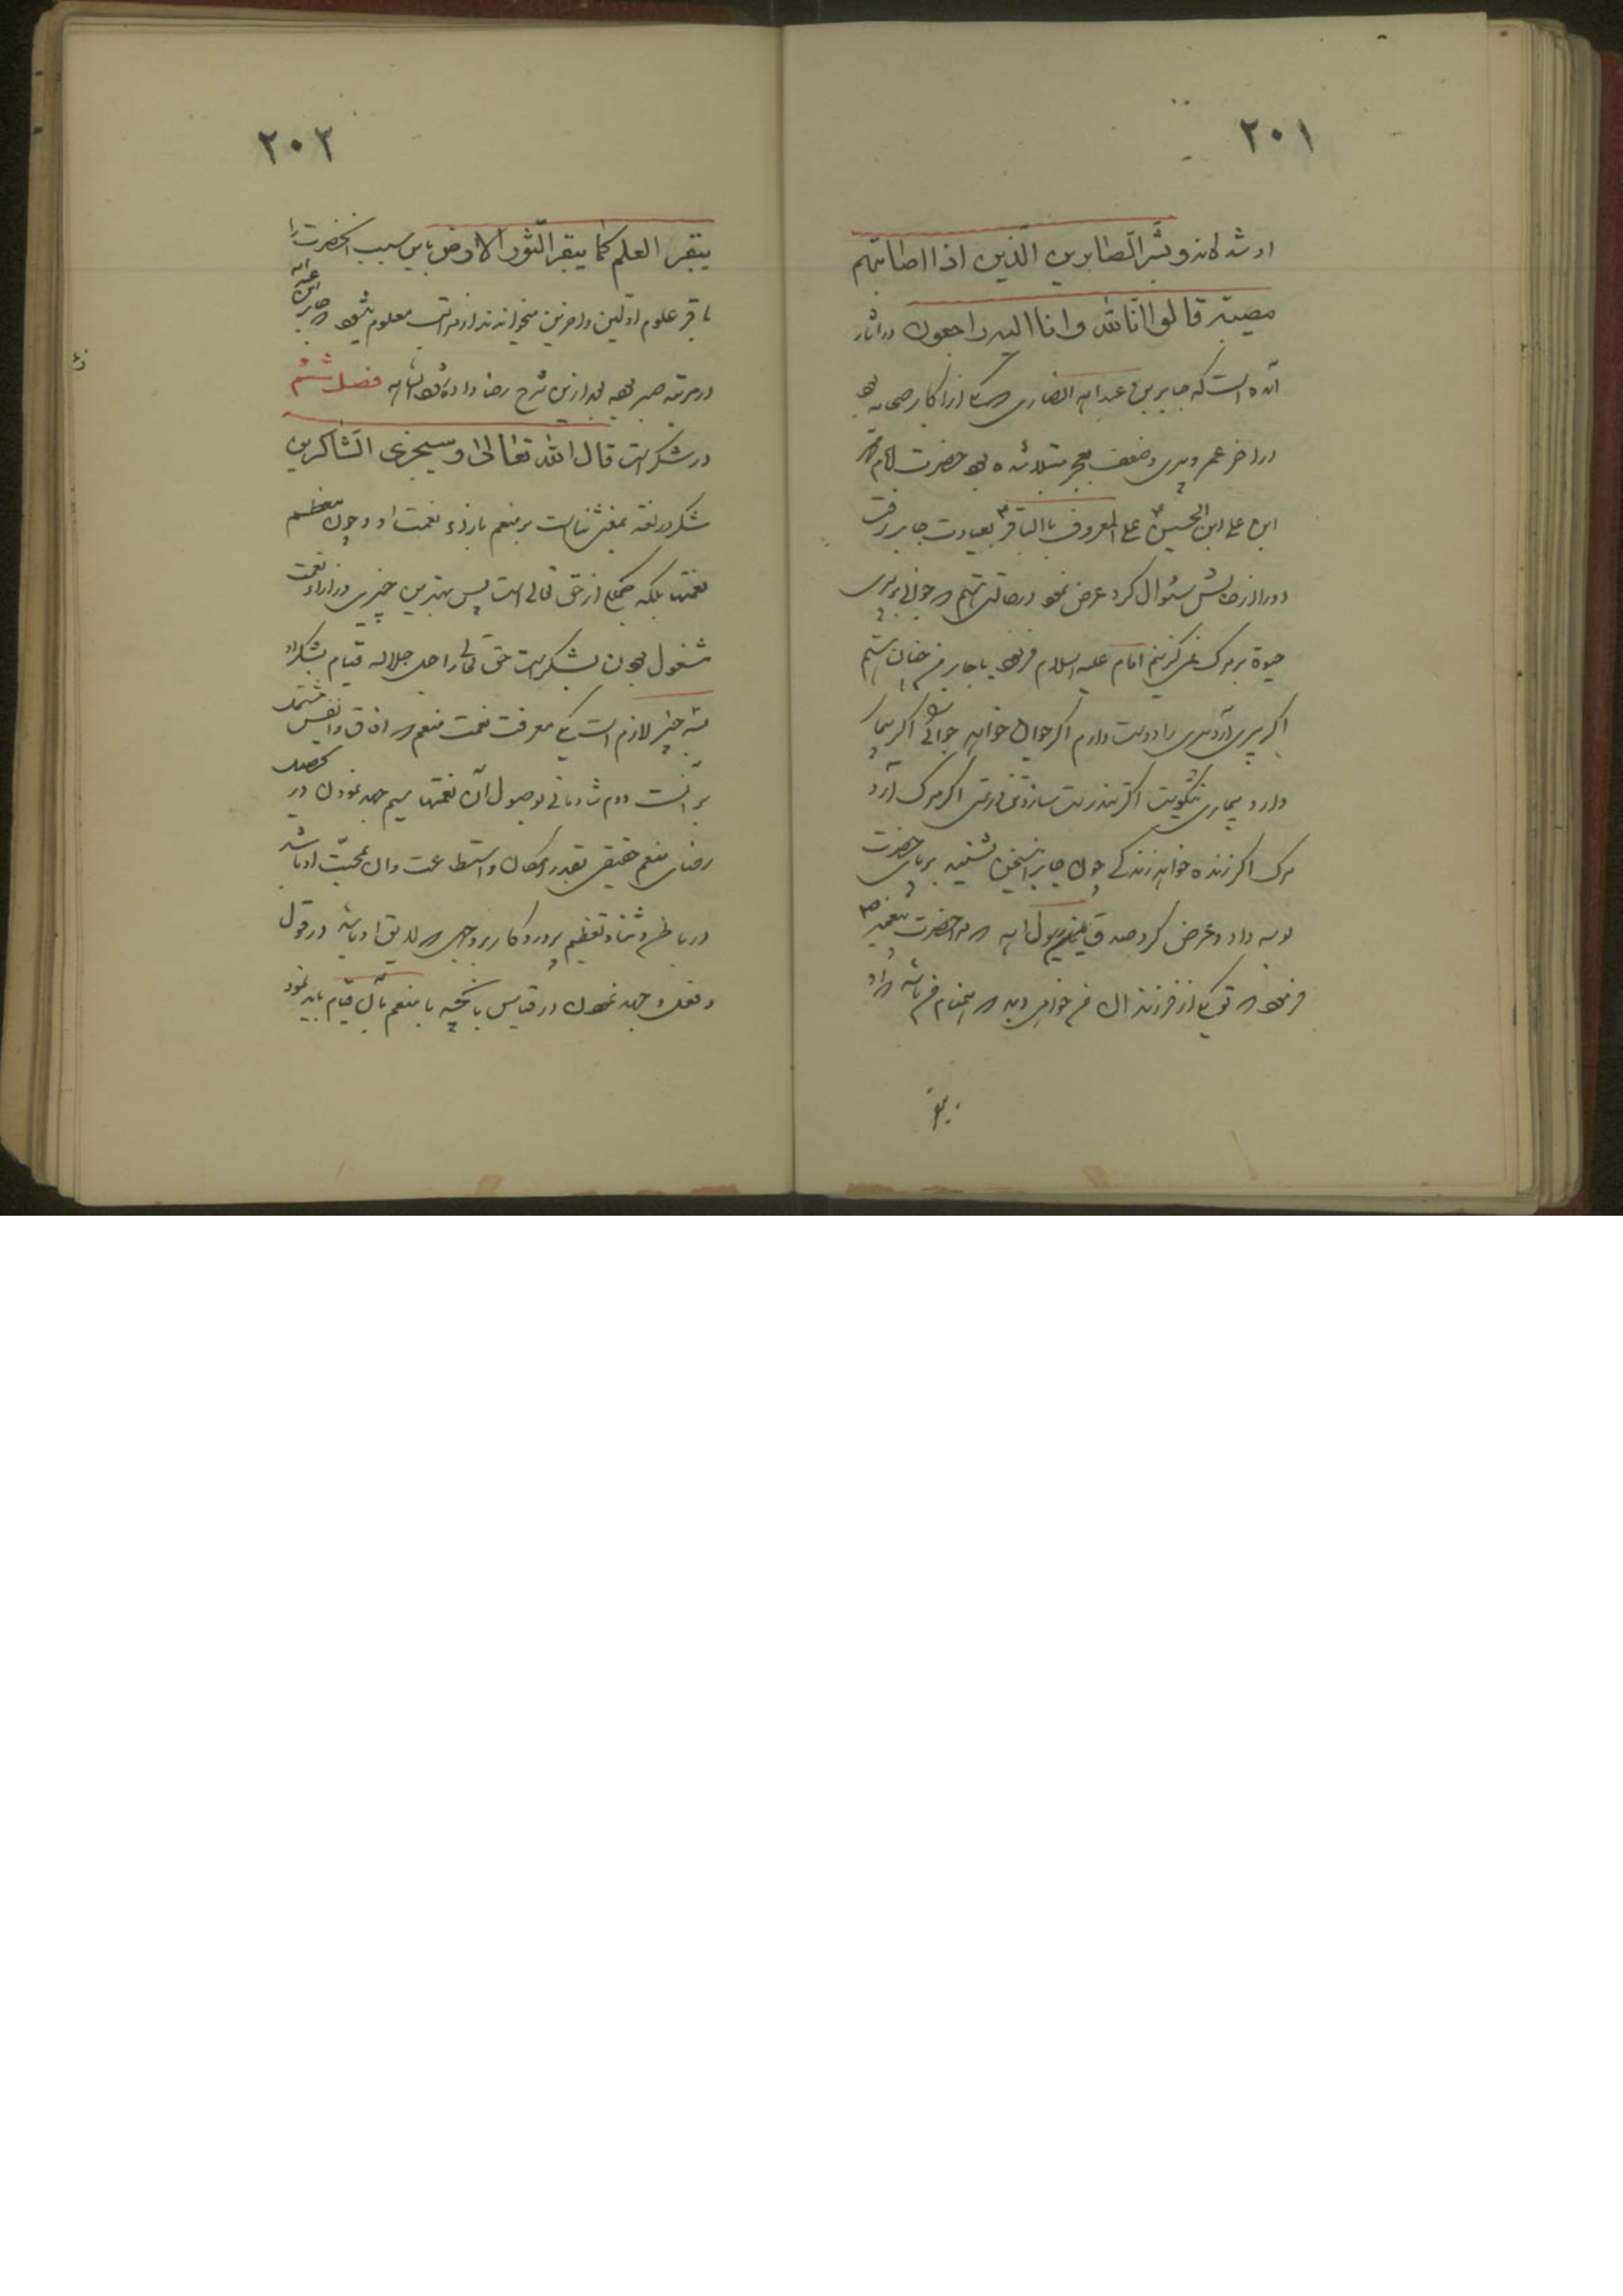 ۲۰۱
او شده اند و بشّر الصّابرین الّذین اذا اصابتهم
مصیبة قالوا انّا لله و انا الیه راجعون در آثار
آمده است که جابر بن عبد الله انصاری که یکی از اکابر صحابه بود
در آخر عمر و پیری و ضعف و عجز مبتلا شده بود حضرت امام محمد
ابن علی ابن الحسین علی المعروف باالباقر بعیادت جابر رفت
و در از حالش سئوال کرد عرض نمود در حالتی هستم که جوانی بر پیری
حیوة بر مرگ نمی گزینم امام علیه السلام فرمود یا جابر من چنان هستم
اگر پیری آرد پیری را دوست دارم اگر جوان خواهد جوانی اگر بیمار
دارد بیماری نیکویست اگر تندرست سازد تندرستی اگر مرگ آرد
مرگ اگر زنده خواهد زندگی چون جابر این سخن بشنید بر پای حضرت
بوسه داد و عرض کرد صدق یا بن رسول الله که مرا حضرت پیغمبر
فرمود که تو یکی از فرزندان من خواهی دید که همنام من باشد که او
یبقر
۲۰۲
یبقر العلم کما یبقر الثّور الارض باین سبب آنحضرت را
باقر علوم اولین و آخرین میخوانند از مراتب معلوم میشود که جابر ابن عبد الله
در مرتبه صبر بوده بعد ازین شرح رضا داده شود انشاء الله فصل ششم
در شکر است قال الله تعالی و سیجزی الشّاکرین
شکر در لغة بمعنی ثناست بر منعم بازاء نعمت او و چون معظم
نعمتها بلکه جملگی از حق تعالی است پس بهترین چیزی در ازاء نعمت
مشغول بودن بشکر است حق تعالی را جل جلاله قیام بشکر او
سه چیز لازم است یکی معرفت نعمت منعم که آفاق و انفس مشتمل
بر آنست دوم شادمانی بوصول آن نعمتها سیم جهد نمودن در تحصیل
رضای منعم حقیقی بقدر امکان و استطاعت و آن بمحبّت او باشد
در باطن و ثنا و تعظیم پروردگار بر وجهی که لایق او باشد در قول
و فعل و جهد نمودن در قیاس بآنچه با منعم بآن قیام باید نمود